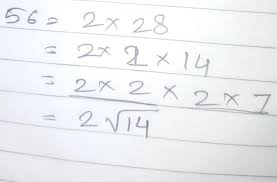 56 = 2 × 28
= 2 × 2 × 14
= 2 × 2 × 2 × 7
= 2 √14